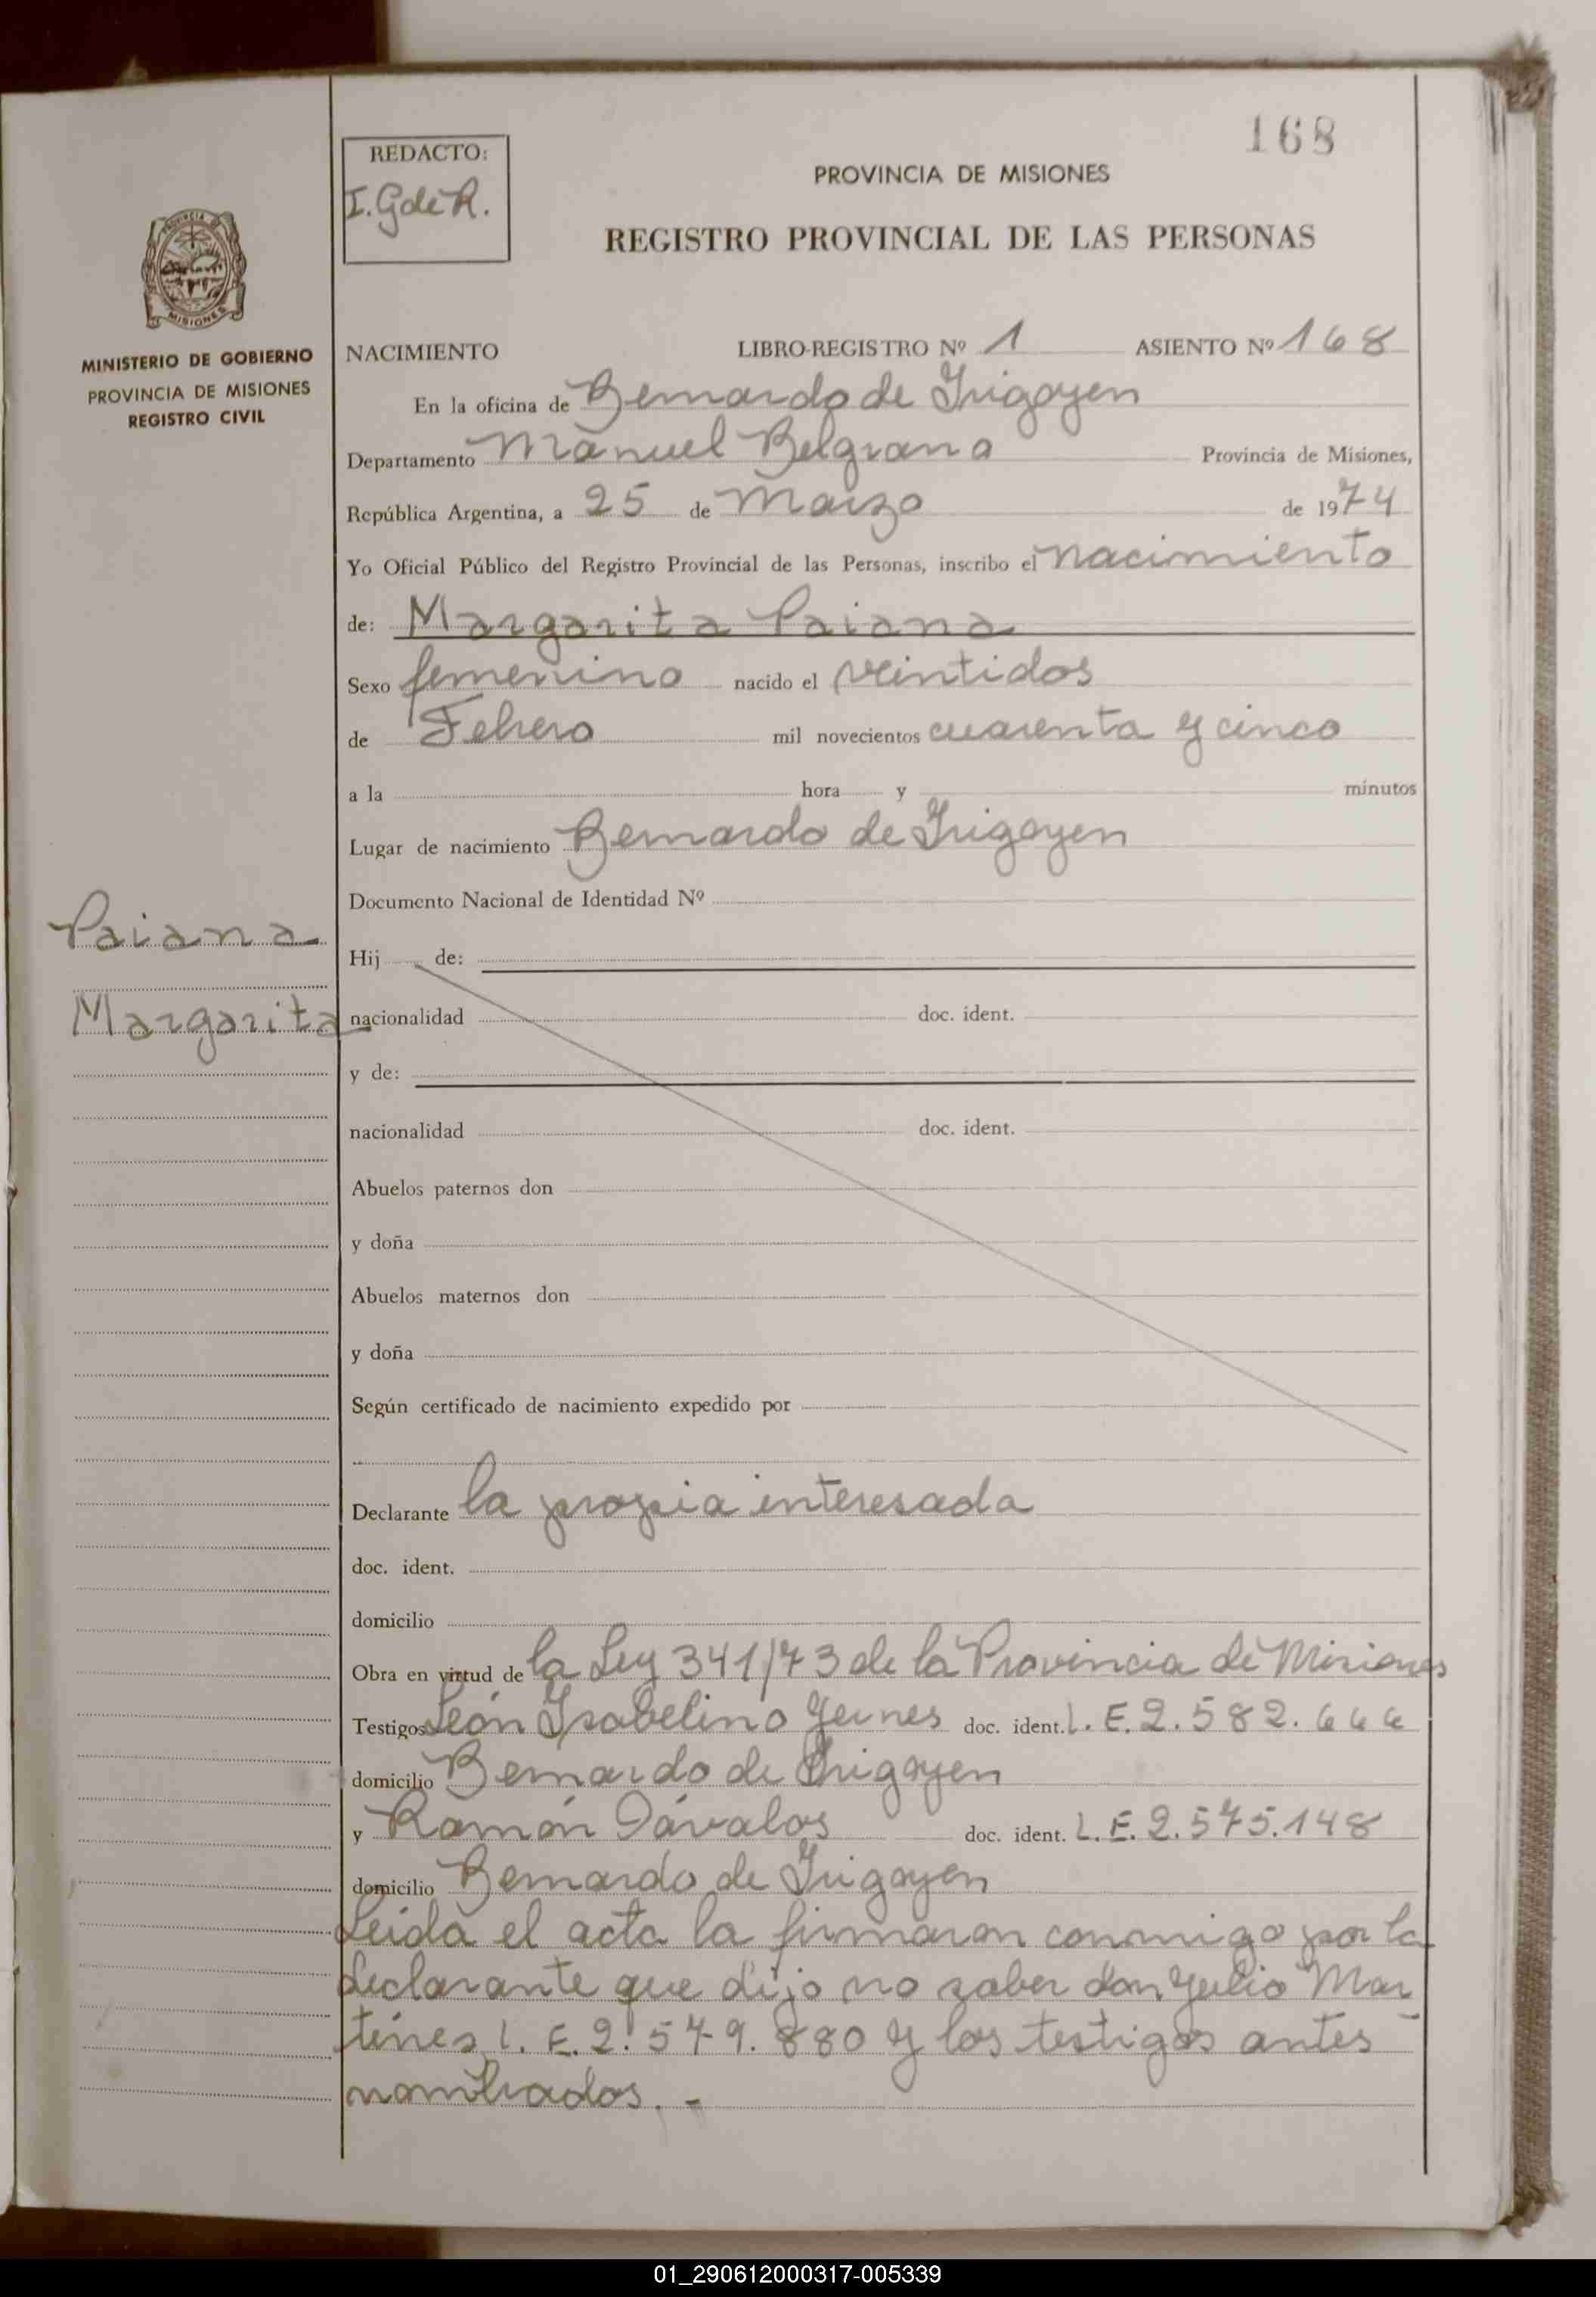 168
REDACTO:
I. G de R.
PROVINCIA DE MISIONES
REGISTRO PROVINCIAL DE LAS PERSONAS
PROVINCIA DE
MISIONES
MINISTERIO DE GOBIERNO
PROVINCIA DE MISIONES
REGISTRO CIVIL
NACIMIENTO LIBRO-REGISTRO Nº 1 ASIENTO Nº 168
En la oficina de Bernardo de Irigoyen
Departamento Manuel Belgrano Provincia de Misiones,
República Argentina, a 25 de Marzo de 1974
Yo Oficial Público del Registro Provincial de las Personas, inscribo el nacimiento
de: Margarita Paiana
Sexo femenino nacido el veintidos
de Febrero mil novecientos cuarenta y cinco
a la hora y minutos
Lugar de nacimiento Bernardo de Irigoyen
Documento Nacional de Identidad Nº
Paiana
Margarita
Hij de:
nacionalidad doc. ident.
y de:
nacionalidad doc. ident.
Abuelos paternos don
y doña
Abuelos maternos don
y doña
Según certificado de nacimiento expedido por
Declarante la propia interesada
doc. ident.
domicilio
Obra en virtud de la Ley 341/73 de la Provincia de Misiones
Testigos León Isabelino doc. ident. L. E. 2.582.666
domicilio Bernardo de Irigoyen
y Ramón Dávalos doc. ident. L. E. 2.575.148
domicilio Bernardo de Irigoyen
Leida el acta la firmaron conmigo por la
declarante que dijo no saber don Julio Mar
tinez L. E. 2.579.880 y los testigos antes
nombrados. -
01_290612000317-005339